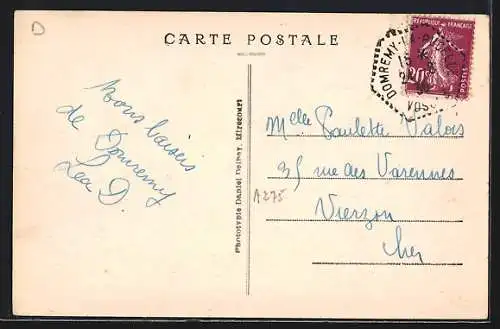 D
CARTE POSTALE
REPUBLIQUE FRANÇAISE
20c
POSTES
DOMREMY-LA-PUCELLE
VOSGES
Bons baisers
de Domremy
Léa D.
Phototypie Daniel Delboy, Mirecourt
A275
Melle Paulette Valois
35 rue des Varennes
Vierzon
Cher